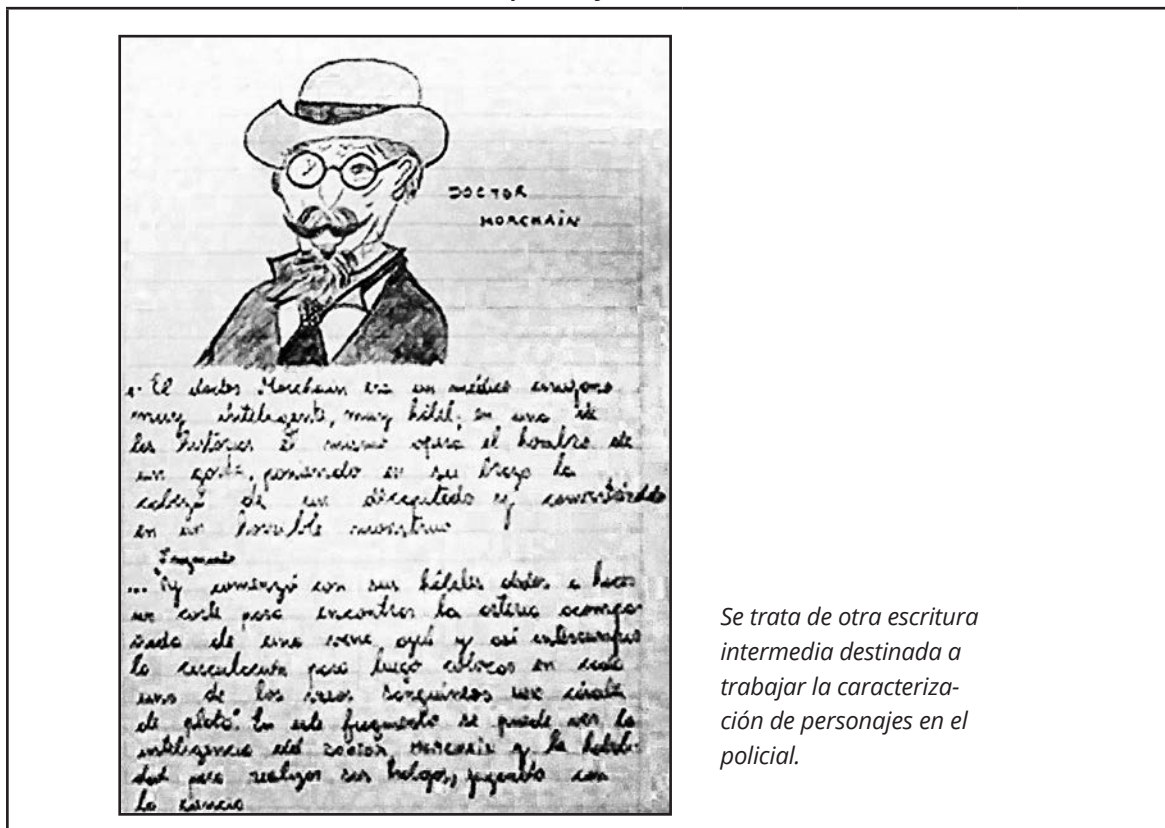 DOCTOR
MORCHAIN
El doctor Morchain era un médico cirujano
muy inteligente, muy hábil; en una de
las historias él mismo opera el hombro de
un gorila, poniendo en su brazo la
cabeza de un decapitado y convirtiéndolo
en un horrible monstruo
Fragmento
... "y comenzó con sus hábiles dedos a hacer
un corte para encontrar la arteria acompa
ñada de una vena, aquí y así interrumpió
la circulación para luego colocar en cada
uno de los vasos sanguíneos una cánula
de plata". En este fragmento se puede ver la
inteligencia del DOCTOR MORCHAIN y la habili
dad para realizar sus, jugando con
la ciencia
Se trata de otra escritura
intermedia destinada a
trabajar la caracteriza-
ción de personajes en el
policial.